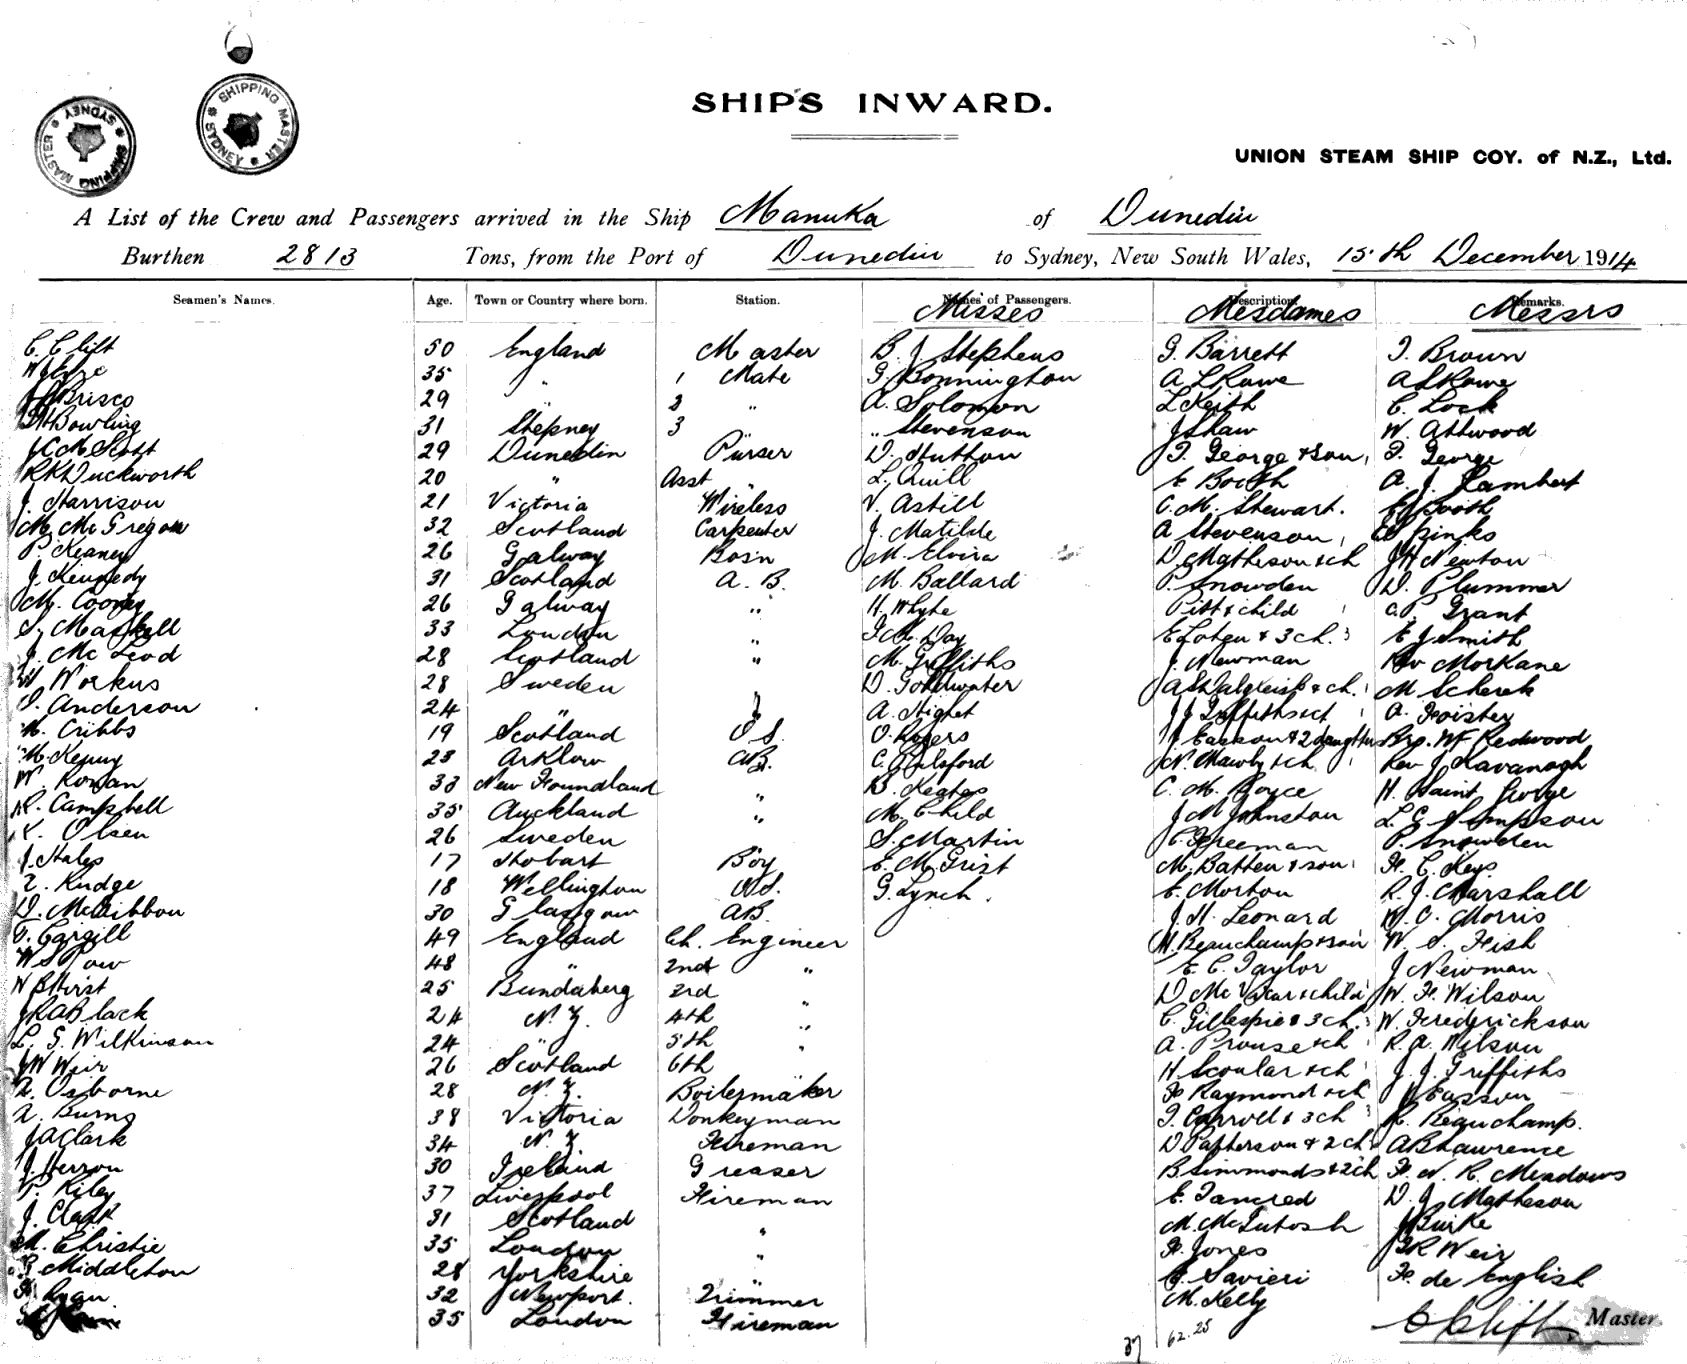 SHIPPING MASTER * SYDNEY *
SHIPPING MASTER * SYDNEY *
SHIP'S INWARD.
UNION STEAM SHIP COY. of N.Z., Ltd.
A List of the Crew and Passengers arrived in the Ship Manuka of Dunedin
Burthen 2813 Tons, from the Port of Dunedin to Sydney, New South Wales, 15th December 1914
Seamen's Names. Age. Town or Country where born. Station. Names of Passengers. Description. Remarks.
Misses Mesdames Messrs
C. Clift 50 England Master B. J. Stephens G. Barrett T. Brown
35 " 1 Mate G. Bonnington A L Rowe A L Rowe
Brisco 29 " 2 " A. Solomon L Keith C. Lock
Bowling 31 Stepney 3 " Stevenson J Shaw W. Attwood
J C McScott 29 Dunedin Purser D. Hutton T. George & son, T. George
R K Duckworth 20 " Asst " L. Quill E Booth A. J. Lambert
J. Harrison 21 Victoria Wireless V. Astill C. M. Stewart. Booth
M. McGregor 32 Scotland Carpenter J. Matilde A Stevenson, Spinks
P. Keaney 26 Galway Bosn M. Elvira D Matheson & ch J H Newton
J. Kennedy 31 Scotland A. B. M. Ballard P. Snowden D. Plummer
M. Cooney 26 Galway " H. Whyte Pitt & child C. P. Grant
S. Maskell 33 London " I M. Day E & 3 ch. E J Smith
J. McLeod 28 Scotland " M. Griffiths J. Newman Rev Morkane
W Workus 28 Sweden " D. Goldwater A St Dalgleish & ch. M Scherek
O. Anderson 24 " " A. Hight J J Griffiths & ch A. Foister
M. Cribbs 19 Scotland O S. O. Rogers J Easson & 2 daughters Brs. W F Redwood
M. Kenny 25 Arklow AB. C. Pulsford N. Mawby & ch. Rev J. Kavanagh
W. Rowan 33 New Foundland " D. Keates C. M. Boyce H. Saint George
R. Campbell 35 Auckland " M. Child J M Johnston L. G. Simpson
K. Olsen 26 Sweden S. Martin C. Freeman P. Snowden
J. Hales 17 Hobart Boy E. M. Grist M. Batten & son F. C. Keys
T. Rudge 18 Wellington O S. G. Lynch. E. Morton R. J. Marshall
D. McGibbon 30 Glasgow AB. J. H. Leonard W. O. Morris
T. Cargill 49 England Ch. Engineer H. Beauchamp & son W. S. Fish
W S 48 " 2nd " E. C. Taylor J Newman
W B Hirst 25 Bundaberg 3rd " D. McVicar & child W. F. Wilson
J R A Black 24 N. Z. 4th " C. Gillespie & 3 ch. W. Frederickson
L. G. Wilkinson 24 " 5th " A. Prouse & ch R. A. Wilson
J W Weir 26 Scotland 6th H Scoular & ch J. J. Griffiths
T. Osborne 28 N. Z. Boilermaker F Raymond & ch J Easson
T. Burns 38 Victoria Donkeyman T. Carroll & 3 ch H. Beauchamp.
J A Clark 34 N. Z. Fireman D Patterson & 2 ch A B Lawrence
J. Herron 30 Ireland Greaser B Simmonds & 2 ch F. N. R. Meadows
P. Riley 37 Liverpool Fireman E. Tancred D. J. Matheson
J. Clark 31 Scotland " M. McIntosh J Burke
M. Christie 35 London " F. Jones J R Weir
G Middleton 28 Yorkshire " C. Savieri F. de English
F. Ryan 32 Newport. Trimmer M. Kelly
35 London Fireman
37 62.25 C Clift Master